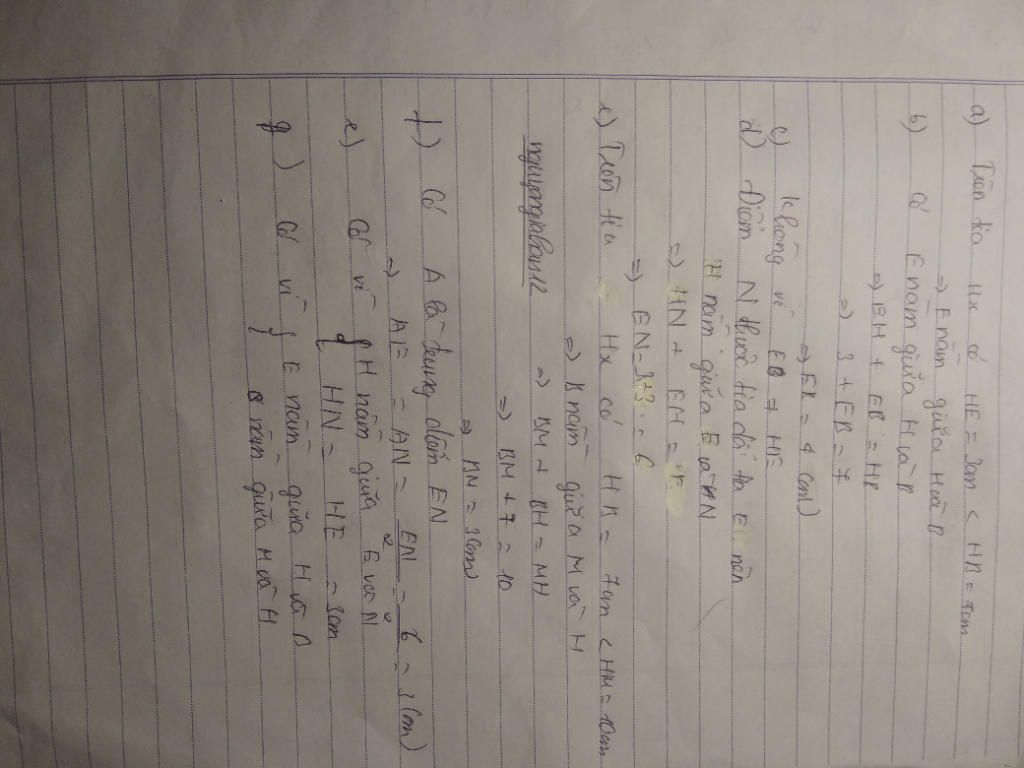 a) Trên tia Hx có HE = 3cm < HB = 7cm
=> E nằm giữa H và B
b) Có E nằm giữa H và B
=> EH + EB = HB
=> 3 + EB = 7
=> EB = 4 (cm)
c) Không vì EB ≠ HE
d) Điểm N thuộc tia đối tia E nên
H nằm giữa E và N
=> HN + EH =
=> EN = 3+3 = 6
e) Trên tia Hx có HB = 7cm < HM = 10cm
=> B nằm giữa M và H
=> BM + BH = MH
=> BM + 7 = 10
=> BM = 3 (cm)
f) Có A là trung điểm EN
=> AE = AN = EN/2 = 6/2 = 3 (cm)
e) Có vì { H nằm giữa E và N
{ HN = HE = 3cm
g) Có vì { E nằm giữa H và B
B nằm giữa M và H